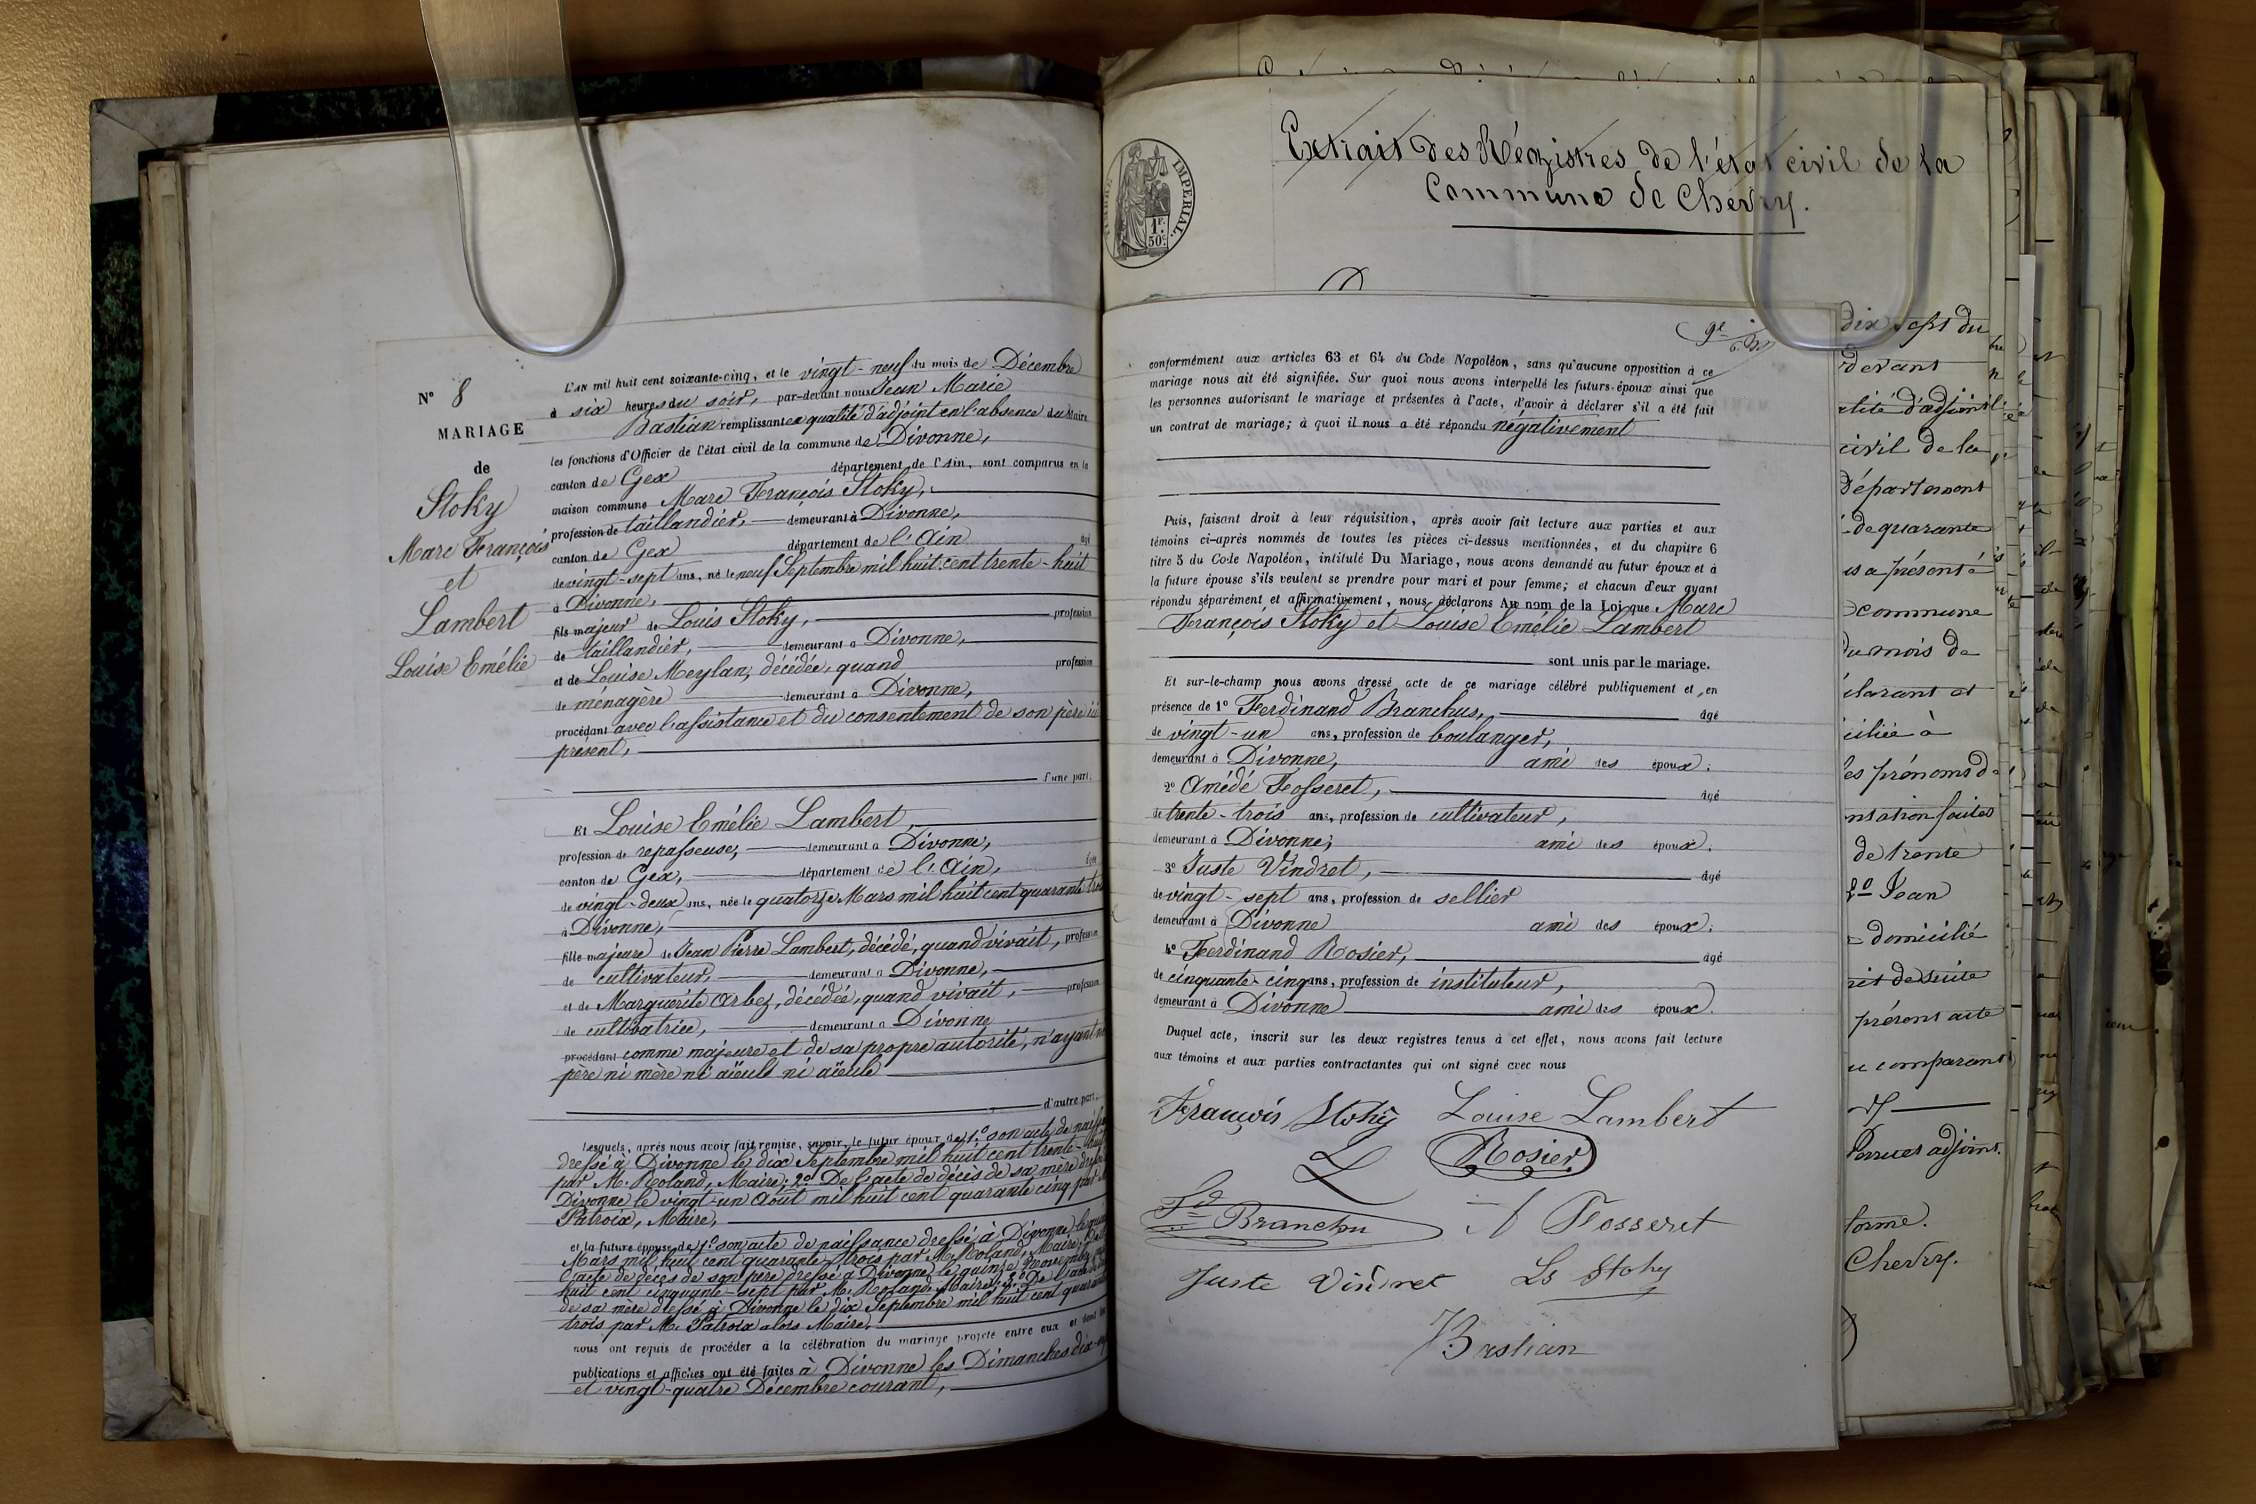 N° 8
MARIAGE
de
Stoky
Marc François
et
Lambert
Louise Emélie
L'AN mil huit cent soixante-cinq, et le vingt-neuf du mois de Décembre
à six heures du soir, par-devant nous Jean Marie
Bastian remplissant en qualité d'adjoint en l'absence du Maire
les fonctions d'Officier de l'état civil de la commune de Divonne,
canton de Gex département de l'Ain, sont comparus en la
maison commune Marc François Stoky,
profession de taillandier, demeurant à Divonne,
canton de Gex département de l'Ain âgé
de vingt-sept ans, né le neuf Septembre mil huit cent trente-huit
à Divonne,
fils majeur de Louis Stoky, profession
de taillandier, demeurant à Divonne,
et de Louise Meylan, décédée, quand profession
de ménagère demeurant à Divonne,
procédant avec l'assistance et du consentement de son père ici
présent,
d'une part.
Et Louise Emélie Lambert
profession de repasseuse, demeurant à Divonne,
canton de Gex, département de l'Ain, âgée
de vingt-deux ans, née le quatorze Mars mil huit cent quarante trois
à Divonne,
fille majeure de Jean Pierre Lambert, décédé, quand vivait, profession
de cultivateur, demeurant à Divonne,
et de Marguerite Arbez, décédée, quand vivait, profession
de cultivatrice, demeurant à Divonne
procédant comme majeure et de sa propre autorité, n'ayant ni
père ni mère ni aïeuls ni aïeule
d'autre part.
Lesquels, après nous avoir fait remise, savoir, le futur époux de 1° son acte de
dressé à Divonne le dix Septembre mil huit cent trente-huit
par M. Roland, Maire; 2° De l'acte de décès de sa mère
Divonne le vingt-un Août mil huit cent quarante cinq par
Patroix, Maire,
et la future épouse de 1° son acte de naissance dressé à Divonne le
Mars mil huit cent quarante-trois par M. Roland, Maire;
l'acte de décès de son père dressé à Divonne le quinze Novembre
huit cent cinquante-sept par M. Roland Maire; 3° De l'acte de
de sa mère dressé à Divonne le dix Septembre mil huit cent quarante
trois par M. Patroix alors Maire,
nous ont requis de procéder à la célébration du mariage projeté entre eux et dont les
publications et affiches ont été faites à Divonne les Dimanches
et vingt-quatre Décembre courant,
Extrait des Régistres de l'état civil de la
Commune de Chevry.
TIMBRE IMPERIAL.
1F.
50c
conformément aux articles 63 et 64 du Code Napoléon, sans qu'aucune opposition à ce
mariage nous ait été signifiée. Sur quoi nous avons interpellé les futurs époux ainsi que
les personnes autorisant le mariage et présentes à l'acte, d'avoir à déclarer s'il a été fait
un contrat de mariage; à quoi il nous a été répondu négativement
Puis, faisant droit à leur réquisition, après avoir fait lecture aux parties et aux
témoins ci-après nommés de toutes les pièces ci-dessus mentionnées, et du chapitre 6
titre 5 du Code Napoléon, intitulé Du Mariage, nous avons demandé au futur époux et à
la future épouse s'ils veulent se prendre pour mari et pour femme; et chacun d'eux ayant
répondu séparément et affirmativement, nous déclarons Au nom de la Loi que Marc
François Stoky et Louise Emélie Lambert
sont unis par le mariage.
Et sur-le-champ nous avons dressé acte de ce mariage célébré publiquement et en
présence de 1° Ferdinand Branchus, âgé
de vingt-un ans, profession de boulanger,
demeurant à Divonne, ami des époux.
2° Amédé Fosseret, âgé
de trente-trois ans, profession de cultivateur,
demeurant à Divonne, ami des époux.
3° Juste Vindret, âgé
de vingt-sept ans, profession de sellier
demeurant à Divonne ami des époux.
4° Ferdinand Rosier, âgé
de cinquante-cinq ans, profession de instituteur,
demeurant à Divonne ami des époux.
Duquel acte, inscrit sur les deux registres tenus à cet effet, nous avons fait lecture
aux témoins et aux parties contractantes qui ont signé avec nous
François Stoky Louise Lambert
Rosier
Fd Branchu A Fosseret
Juste Vindret Ls Stoky
Bastian
dix sept du
devant
civil de la
Département
de quarante
commune
du mois de
es prénoms d
de trente
2° Jean
domicilié
présent acte
comparant
adjoint.
forme.
Chevry.